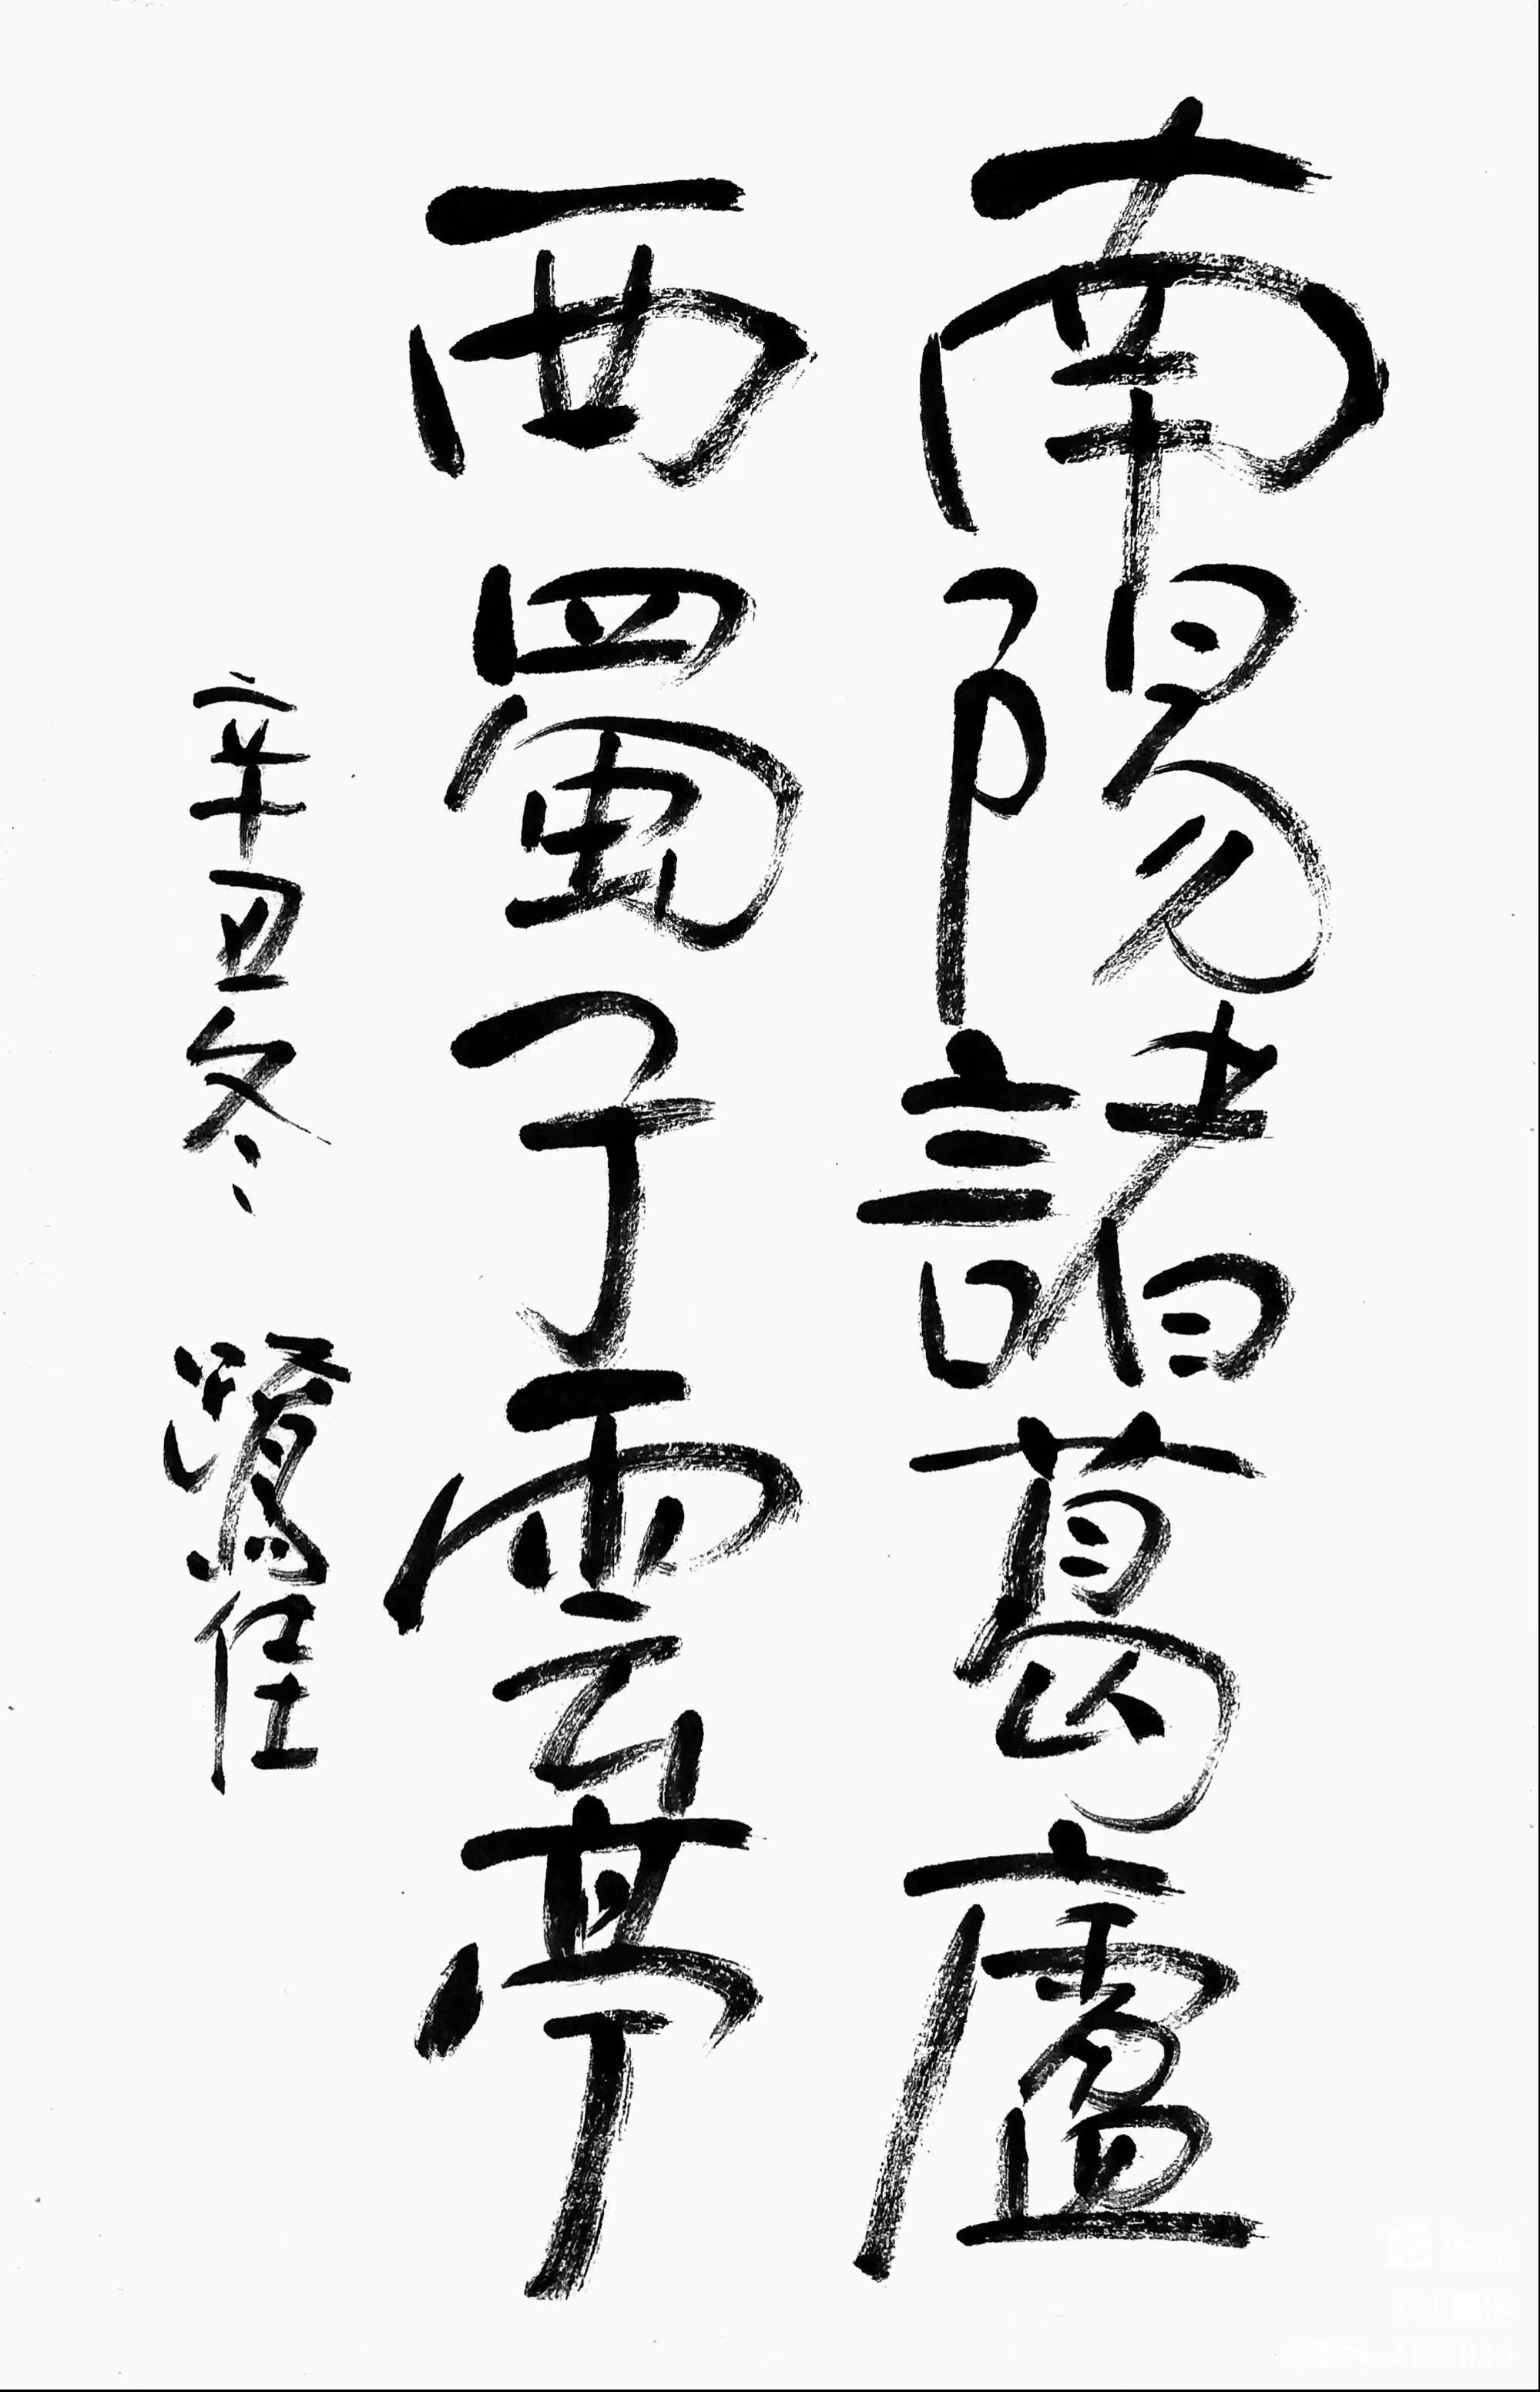 南陽諸葛廬
西蜀子雲亭
辛丑冬 鷺佳